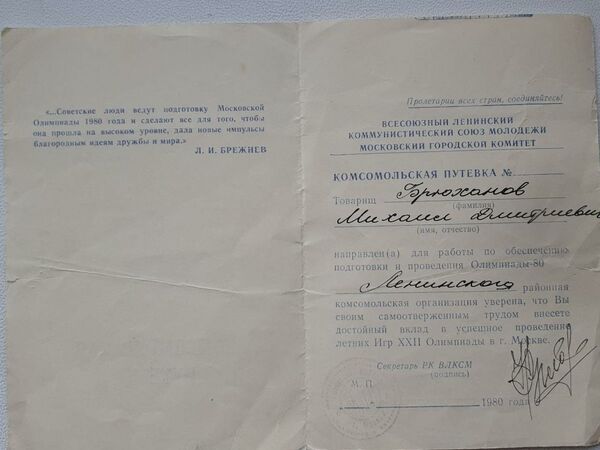 «...Советские люди ведут подготовку Московской
Олимпиады 1980 года и сделают все для того, чтобы
она прошла на высоком уровне, дала новые импульсы
благородным идеям дружбы и мира.»
Л. И. БРЕЖНЕВ
Пролетарии всех стран, соединяйтесь!
ВСЕСОЮЗНЫЙ ЛЕНИНСКИЙ
КОММУНИСТИЧЕСКИЙ СОЮЗ МОЛОДЕЖИ
МОСКОВСКИЙ ГОРОДСКОЙ КОМИТЕТ
КОМСОМОЛЬСКАЯ ПУТЕВКА №
Товарищ Брюханов
(фамилия)
Михаил Дмитриевич
(имя, отчество)
направлен(а) для работы по обеспечению
подготовки и проведения Олимпиады-80
Ленинского районная
комсомольская организация уверена, что Вы
своим самоотверженным трудом внесете
достойный вклад в успешное проведение
летних Игр XXII Олимпиады в г. Москве.
Секретарь РК ВЛКСМ
(подпись)
М. П.
1980 года